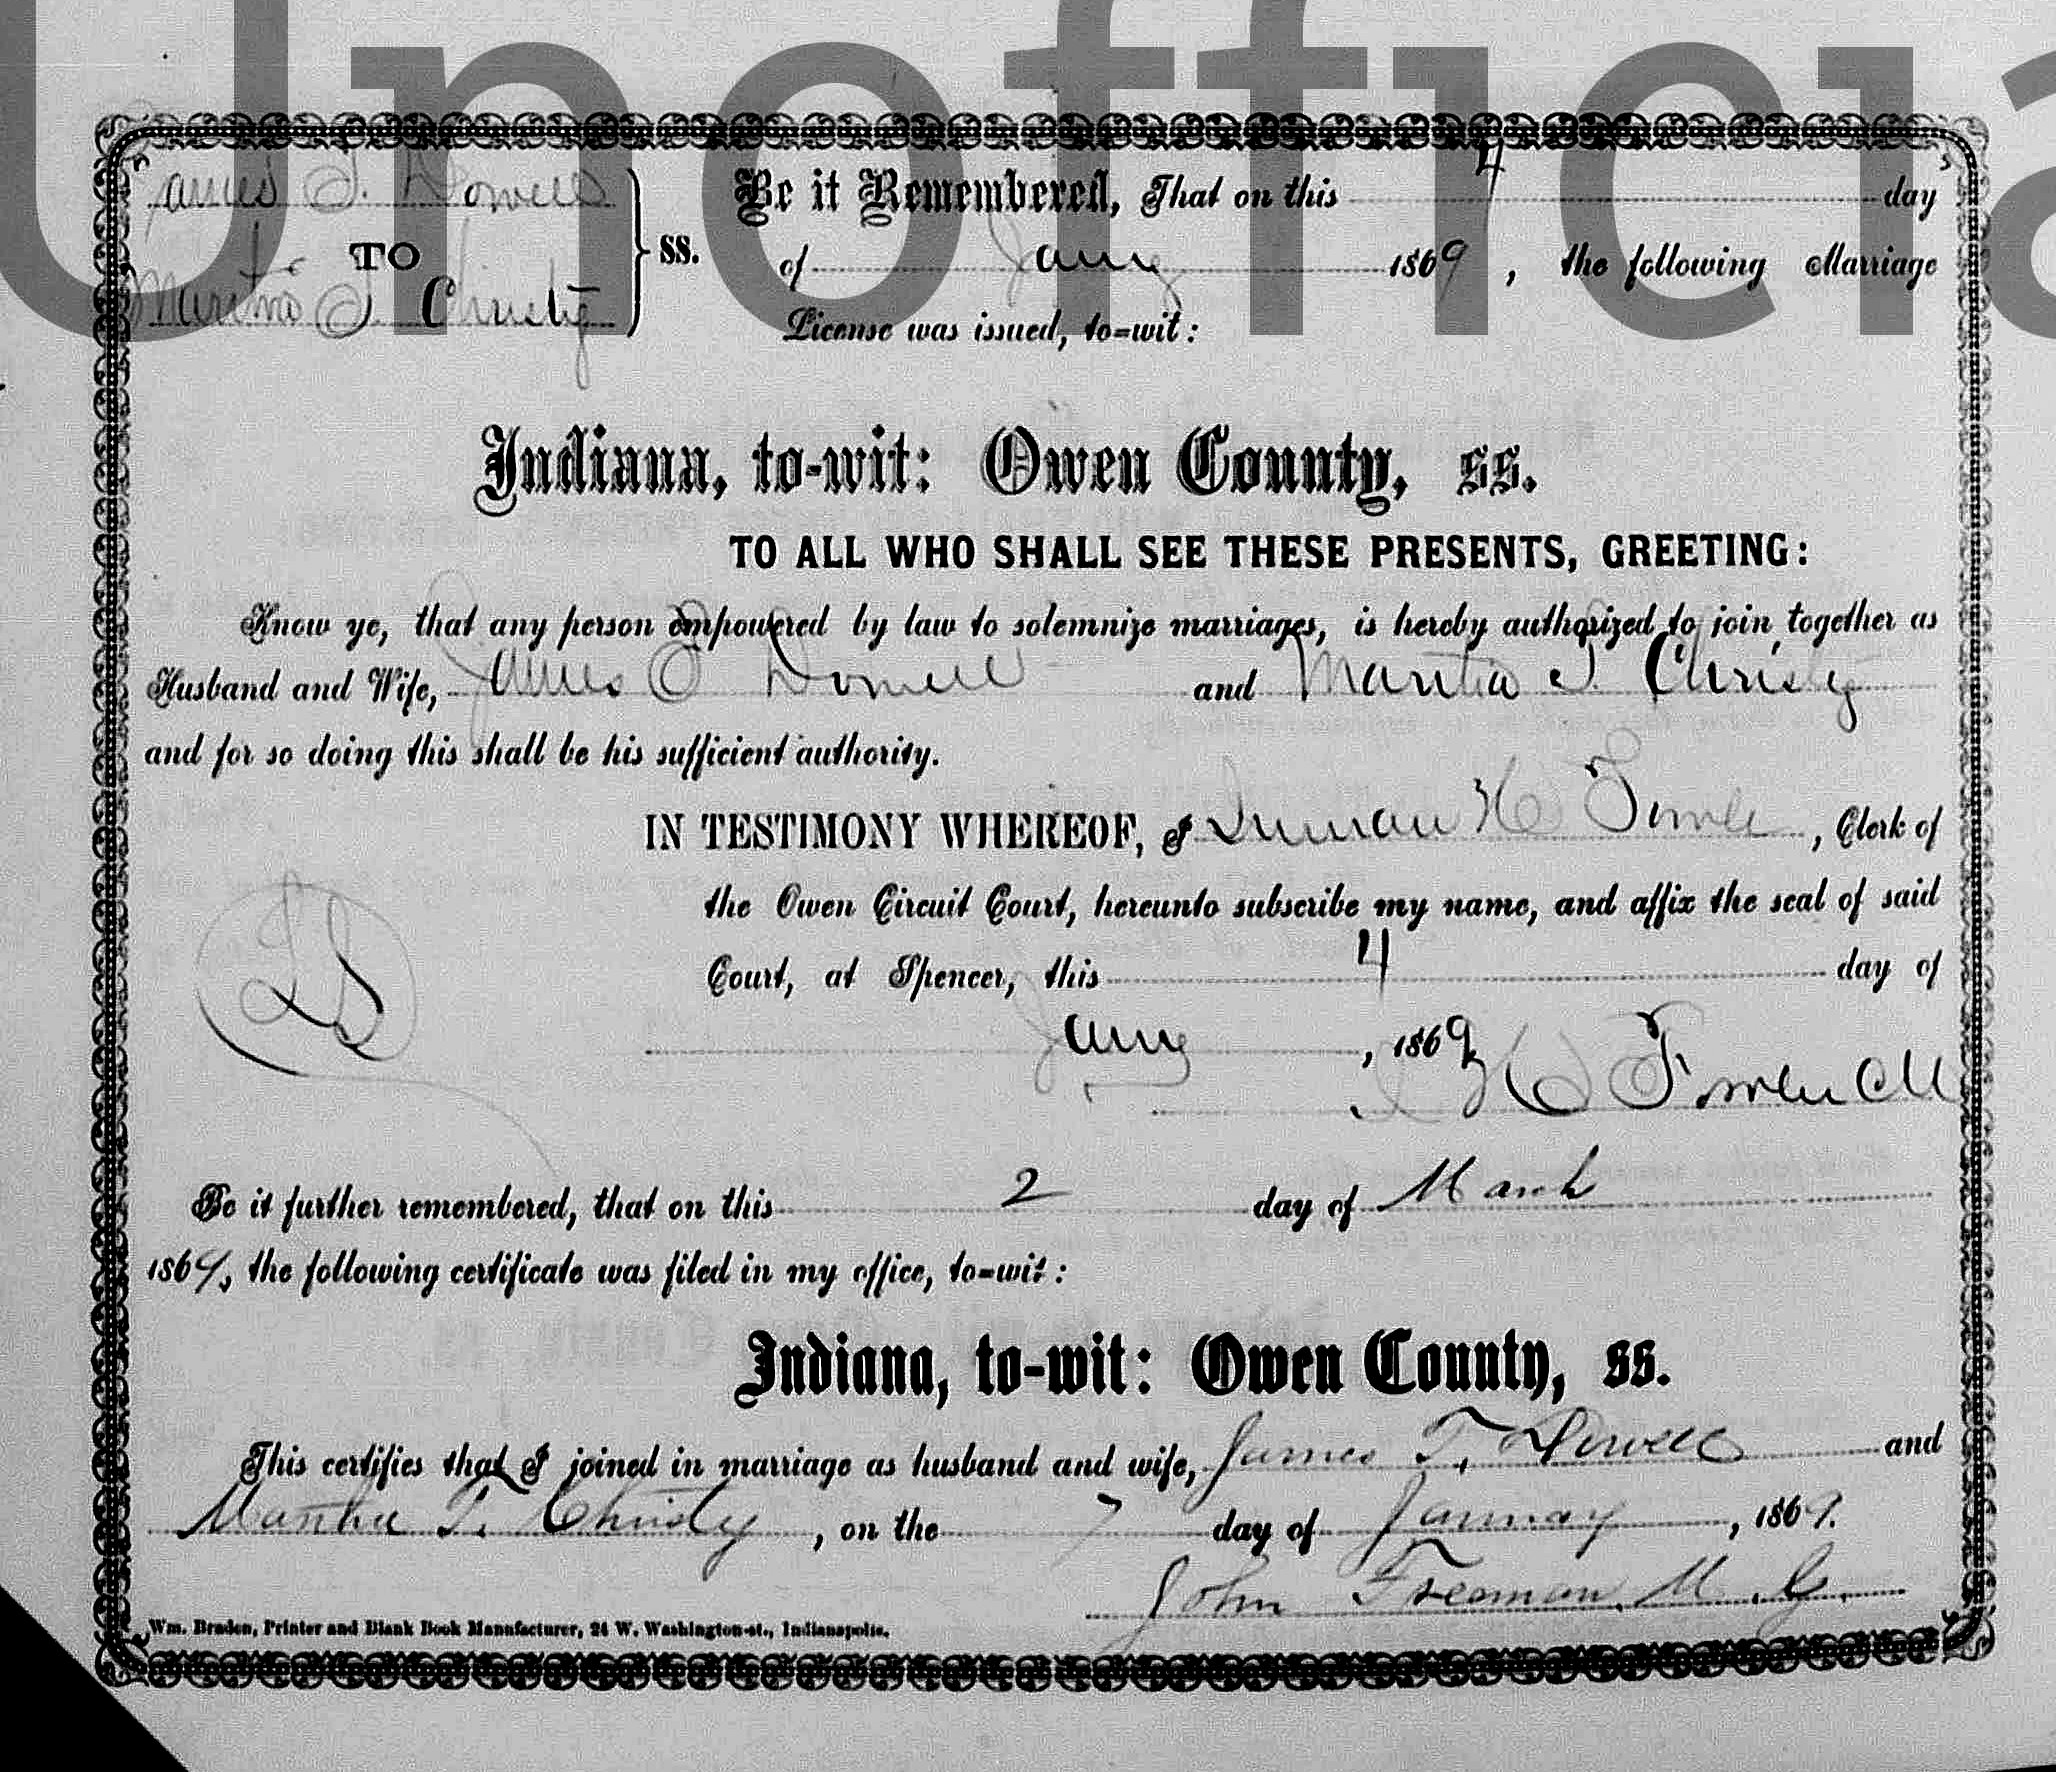 Unofficia
James T. Dowell
TO
Martha T. Christy
ss.
Be it Remembered, That on this 4 day
of Jany 1869, the following Marriage
License was issued, to-wit:
Indiana, to-wit: Owen County, ss.
TO ALL WHO SHALL SEE THESE PRESENTS, GREETING:
Know ye, that any person empowered by law to solemnize marriages, is hereby authorized to join together as
Husband and Wife, James T Dowell and Martha T. Christy
and for so doing this shall be his sufficient authority.
IN TESTIMONY WHEREOF, I Inman H Fowler, Clerk of
the Owen Circuit Court, hereunto subscribe my name, and affix the seal of said
LS
Court, at Spencer, this 4 day of
Jany, 1869
I H Fowler Clk
Be it further remembered, that on this 2 day of March
1869, the following certificate was filed in my office, to-wit:
Indiana, to-wit: Owen County, ss.
This certifies that I joined in marriage as husband and wife, James T. Dowell and
Martha T. Christy, on the 7 day of January, 1869.
John Freeman M. G.
Wm. Braden, Printer and Blank Book Manufacturer, 24 W. Washington-st., Indianapolis.